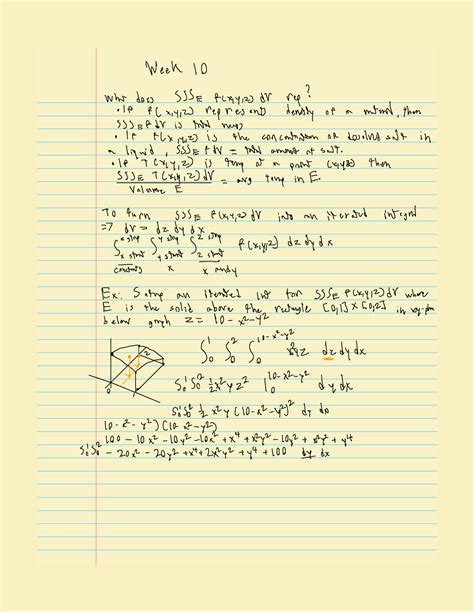 Week 10
What does SSS_E f(x,y,z) dV rep?
• If f(x,y,z) represents density of a material, then
SSS_E f dV is total mass
• If f(x,y,z) is the concentration of dissolved salt in
a liquid, SSS_E f dV = total amount of salt.
• If T(x,y,z) is temp at a point (x,y,z) then
SSS_E T(x,y,z) dV / Volume E = avg temp in E.
To turn SSS_E f(x,y,z) dV into an iterated integral
=> dV = dz dy dx
∫_{x start}^{x stop} ∫_{y start}^{y stop} ∫_{z start}^{z stop} f(x,y,z) dz dy dx
constants x x and y
Ex: Setup an iterated int for SSS_E f(x,y,z) dV where
E is the solid above the rectangle [0,1] x [0,2] in xy-plane
below graph z = 10 - x² - y²
∫_0^1 ∫_0^2 ∫_0^{10-x²-y²} z dz dy dx
2
S_0^1 S_0^2 ½ x² y z² |_0^{10-x²-y²} dy dx
S_0^1 S_0^2 ½ x² y (10-x²-y²)² dy dx
10-x²-y²)(10-x²-y²)
100 - 10x² - 10y² - 10x² + x⁴ + x²y² - 10y² + x²y² + y⁴
S_0^1 S_0^2 - 20x² - 20y² + x⁴ + 2x²y² + y⁴ + 100 dy dx